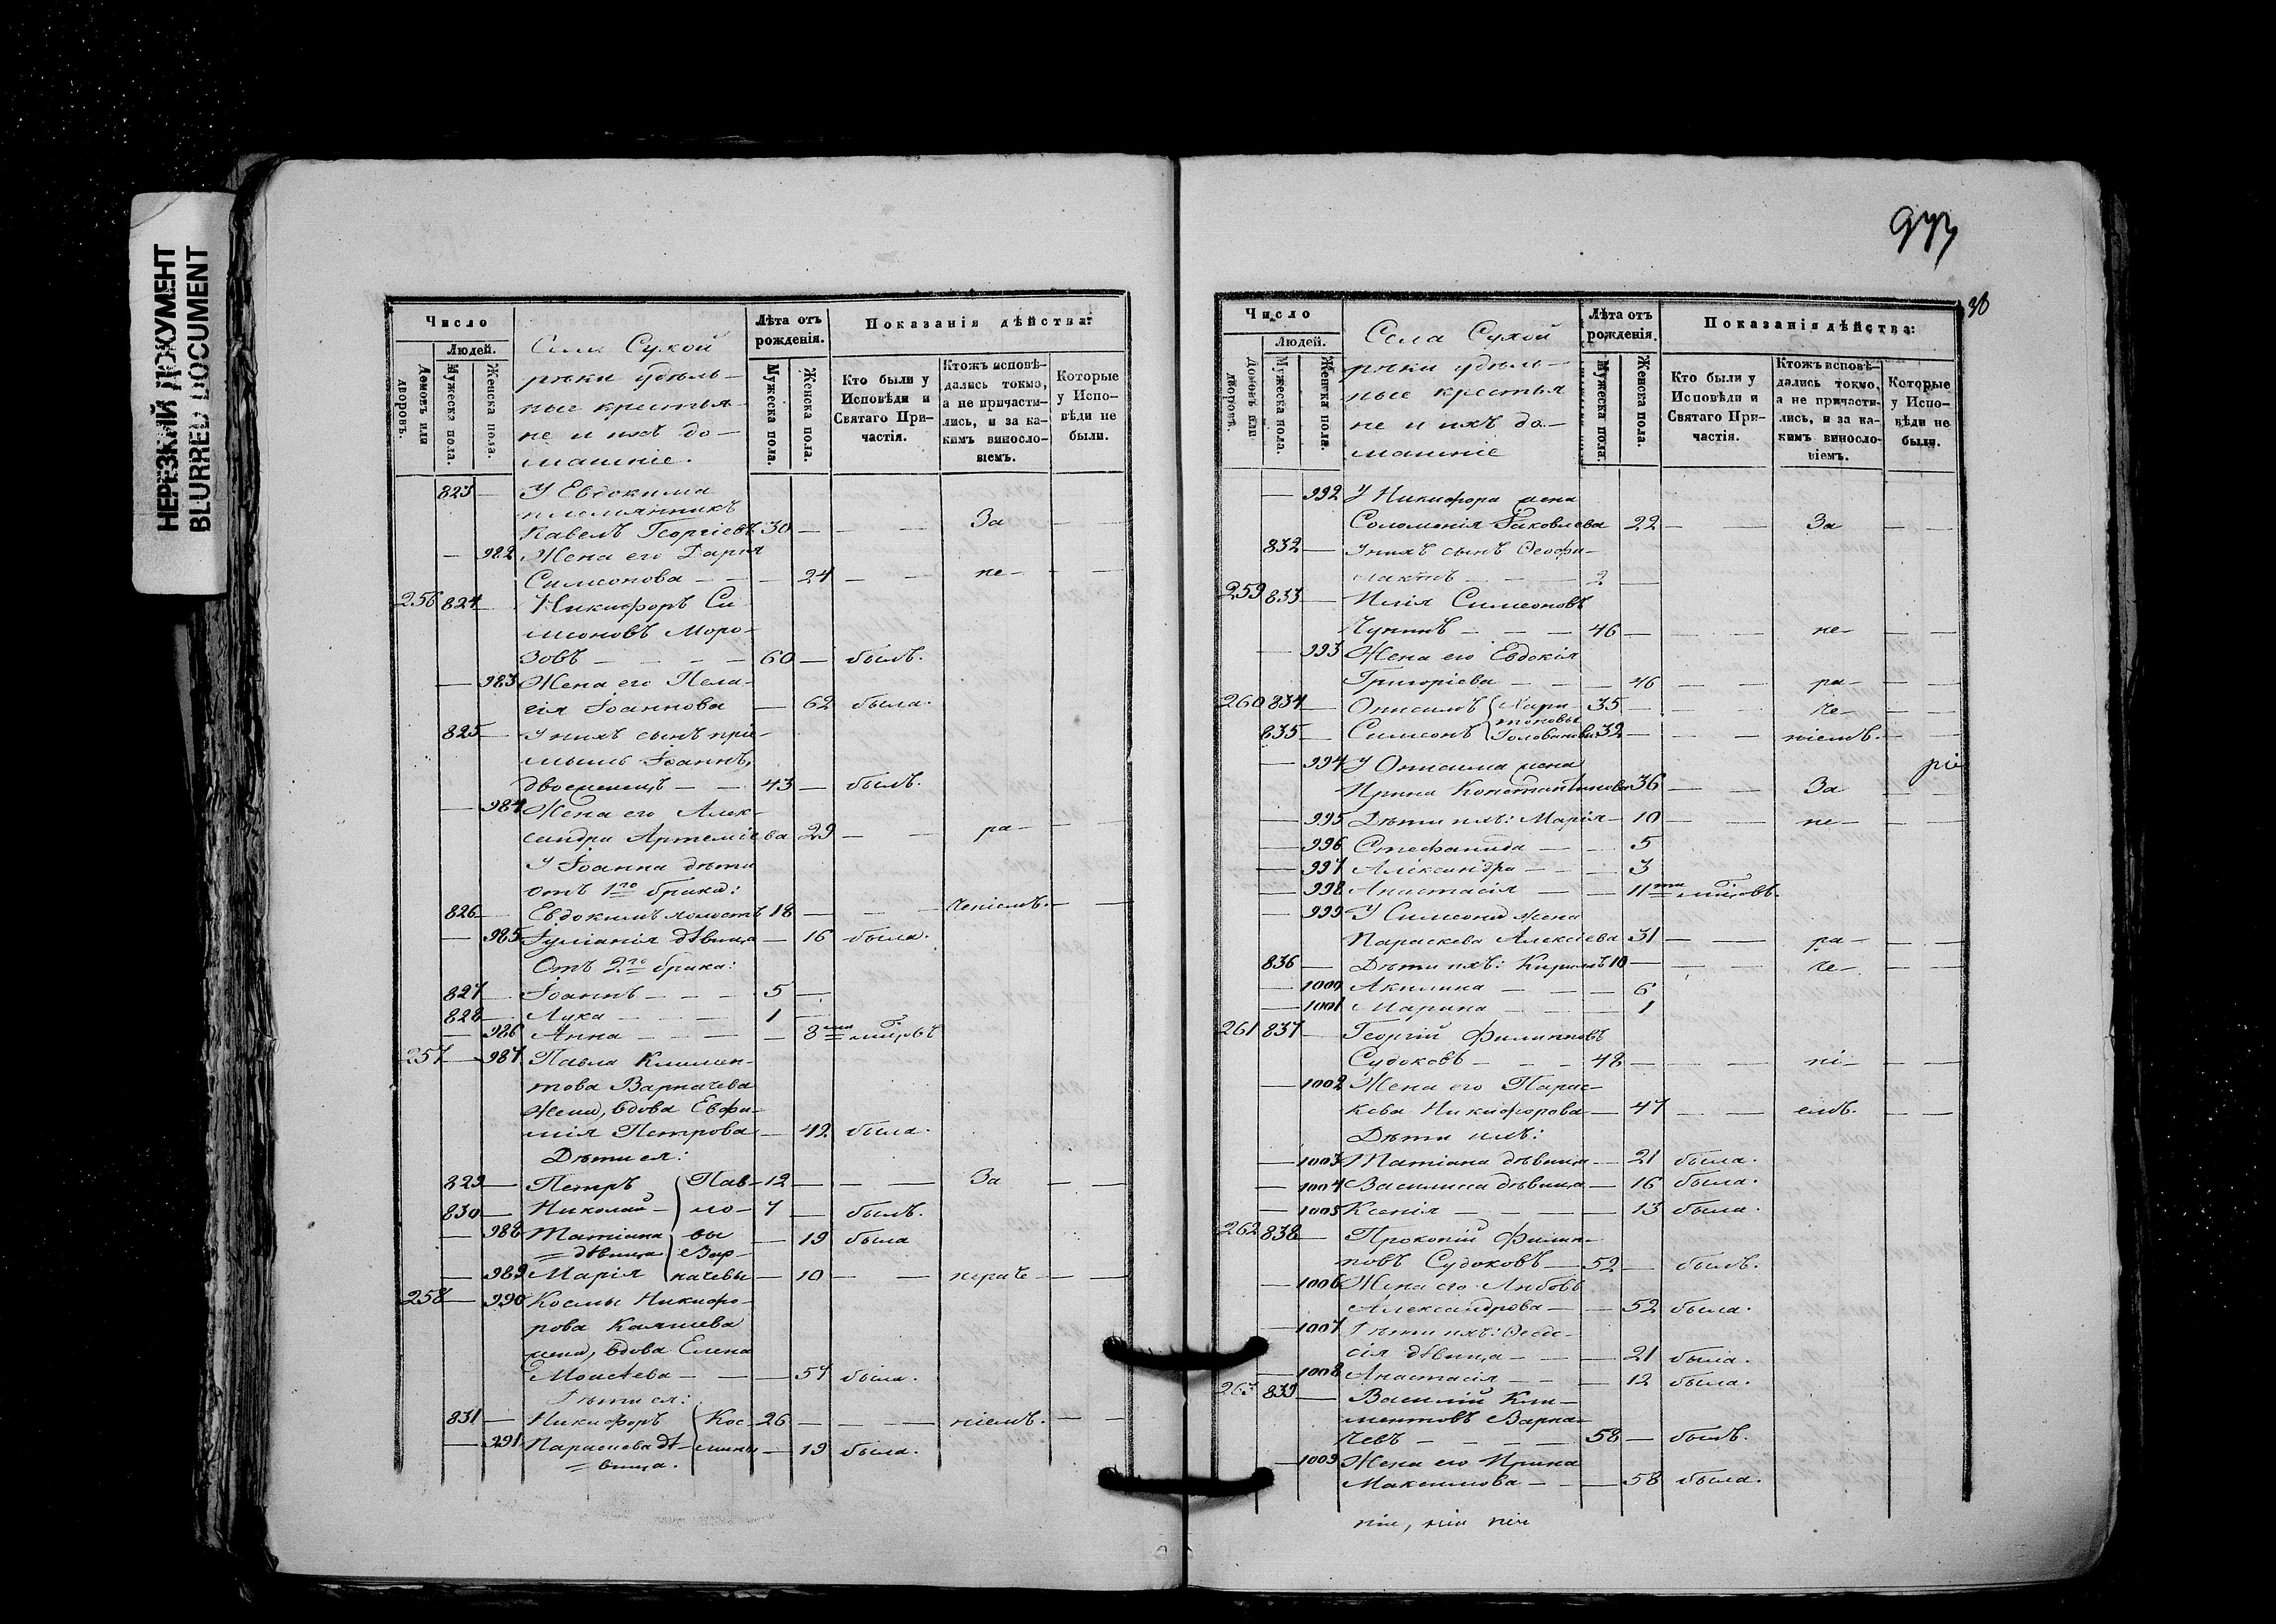 НЕРЕЗКИЙ ДОКУМЕНТ
BLURRED DOCUMENT
Число
Людей.
Домовъ или дворовъ.
Мужеска пола.
Женска пола.
Села Сухой
рѣки удѣль-
ные крестья-
не и ихъ до-
машніе.
Лѣта отъ рожденія.
Мужеска пола.
Женска пола.
Показанія дѣйства:
Кто были у Исповѣди и Святаго При-частія.
Ктожъ исповѣ-дались токмо, а не причасти-лись, и за ка-кимъ виносло-віемъ.
Которые у Испо-вѣди не были.
823 — У Евдокима
племянникъ
Павелъ Георгіевъ 30 — — — За — —
— 982 Жена его Дарія
Симеонова — — — 24 — — не — — —
256 824 — Никифоръ Си-
меоновъ Моро-
зовъ — — — — 60 — былъ.
— 983 Жена его Пела-
гія Іоаннова — 62 была.
825 — У нихъ сынъ прі-
мышъ Іоаннъ,
двоеженецъ — — 43 — былъ.
— 984 Жена его Алек-
сандра Артеміева 29 — — ра — — —
У Іоанна дѣти
отъ 1го брака:
826 — Евдокимъ холостъ 18 — — — ченіемъ. — —
— 985 Іуліанія дѣвица — 16 была.
Отъ 2го брака:
827 — Іоаннъ — — — 5 —
828 — Лука — — — 1 —
— 986 Анна — — — — 8ми мцовъ
257 — 987 Павла Климен-
това Варначева
жена, вдова Евфи-
мія Петрова — 42 была.
Дѣти ея:
829 — Петръ Пав- 12 — — — За — —
830 — Николай — ло- 7 — былъ.
— 988 Татіана вы — 19 была
дѣвица Вар-
— 989 Марія начевы — 10 — — нераче — — —
258 — 990 Космы Никифо-
рова
жена, вдова Елена
Моисѣева — — — 57 была.
Дѣти ея:
831 — Никифоръ Кос- 26 — — — ніемъ. — —
— 991 Параскева дѣ- мины — 19 была.
вица.
30
Число
Людей.
Домовъ или дворовъ.
Мужеска пола.
Женска пола.
Села Сухой
рѣки удѣль-
ные крестья
не и ихъ до-
машніе
Лѣта отъ рожденія.
Мужеска пола.
Женска пола.
Показанія дѣйства:
Кто были у Исповѣди и Святаго При-частія.
Ктожъ исповѣ-дались токмо, а не причасти-лись, и за ка-кимъ виносло-віемъ.
Которые у Испо-вѣди не были.
— 992 У Никифора жена
Соломонія Іаковлева 22 — — За — —
832 — У нихъ сынъ Ѳеофи-
лактъ — — — 2 —
259 833 — Илія Симеоновъ
Чунинъ — — — 46 — — — не — — —
— 993 Жена его Евдокія
Григоріева — — — 46 — — ра — — —
260 834 — Онисимъ Хари- 35 — — — че — — —
835 — Симеонъ тоновы 32 — — — ніемъ. — —
— 994 У Онисима жена
Ирина Константинова 36 — — За —
— 995 Дѣти ихъ: Марія — 10 — — не — — —
— 996 Стефанида — — 5
— 997 Александра — — — 3
— 998 Анастасія — — — 11ти мцовъ.
— 999 У Симеона жена
Параскева Алексіева 31 — — ра — — —
836 — Дѣти ихъ: Кириллъ 10 — — — че — — —
— 1000 Акилина — — — 6
— 1001 Марина — — — 1
261 837 — Георгій Филипповъ
Судоковъ — — — 48 — — — ні — — —
— 1002 Жена его Парас-
кева Никифорова — 47 — — емъ. — —
Дѣти ихъ:
— 1003 Татіана дѣвица — 21 была.
— 1004 Василиса дѣвица — 16 была.
— 1005 Ксенія — — — — 13 была.
262 838 — Прокопій Филип-
повъ Судоковъ — 52 — былъ.
— 1006 Жена его Любовь
Александрова — — 52 была.
— 1007 Дѣти ихъ: Ѳеодо-
сія дѣвица — — — 21 была.
— 1008 Анастасія — — — 12 была.
263 839 — Василій Кли-
ментовъ Варна-
чевъ — — — — 58 — былъ.
— 1009 Жена его Ирина
Максимова — — — 58 была.